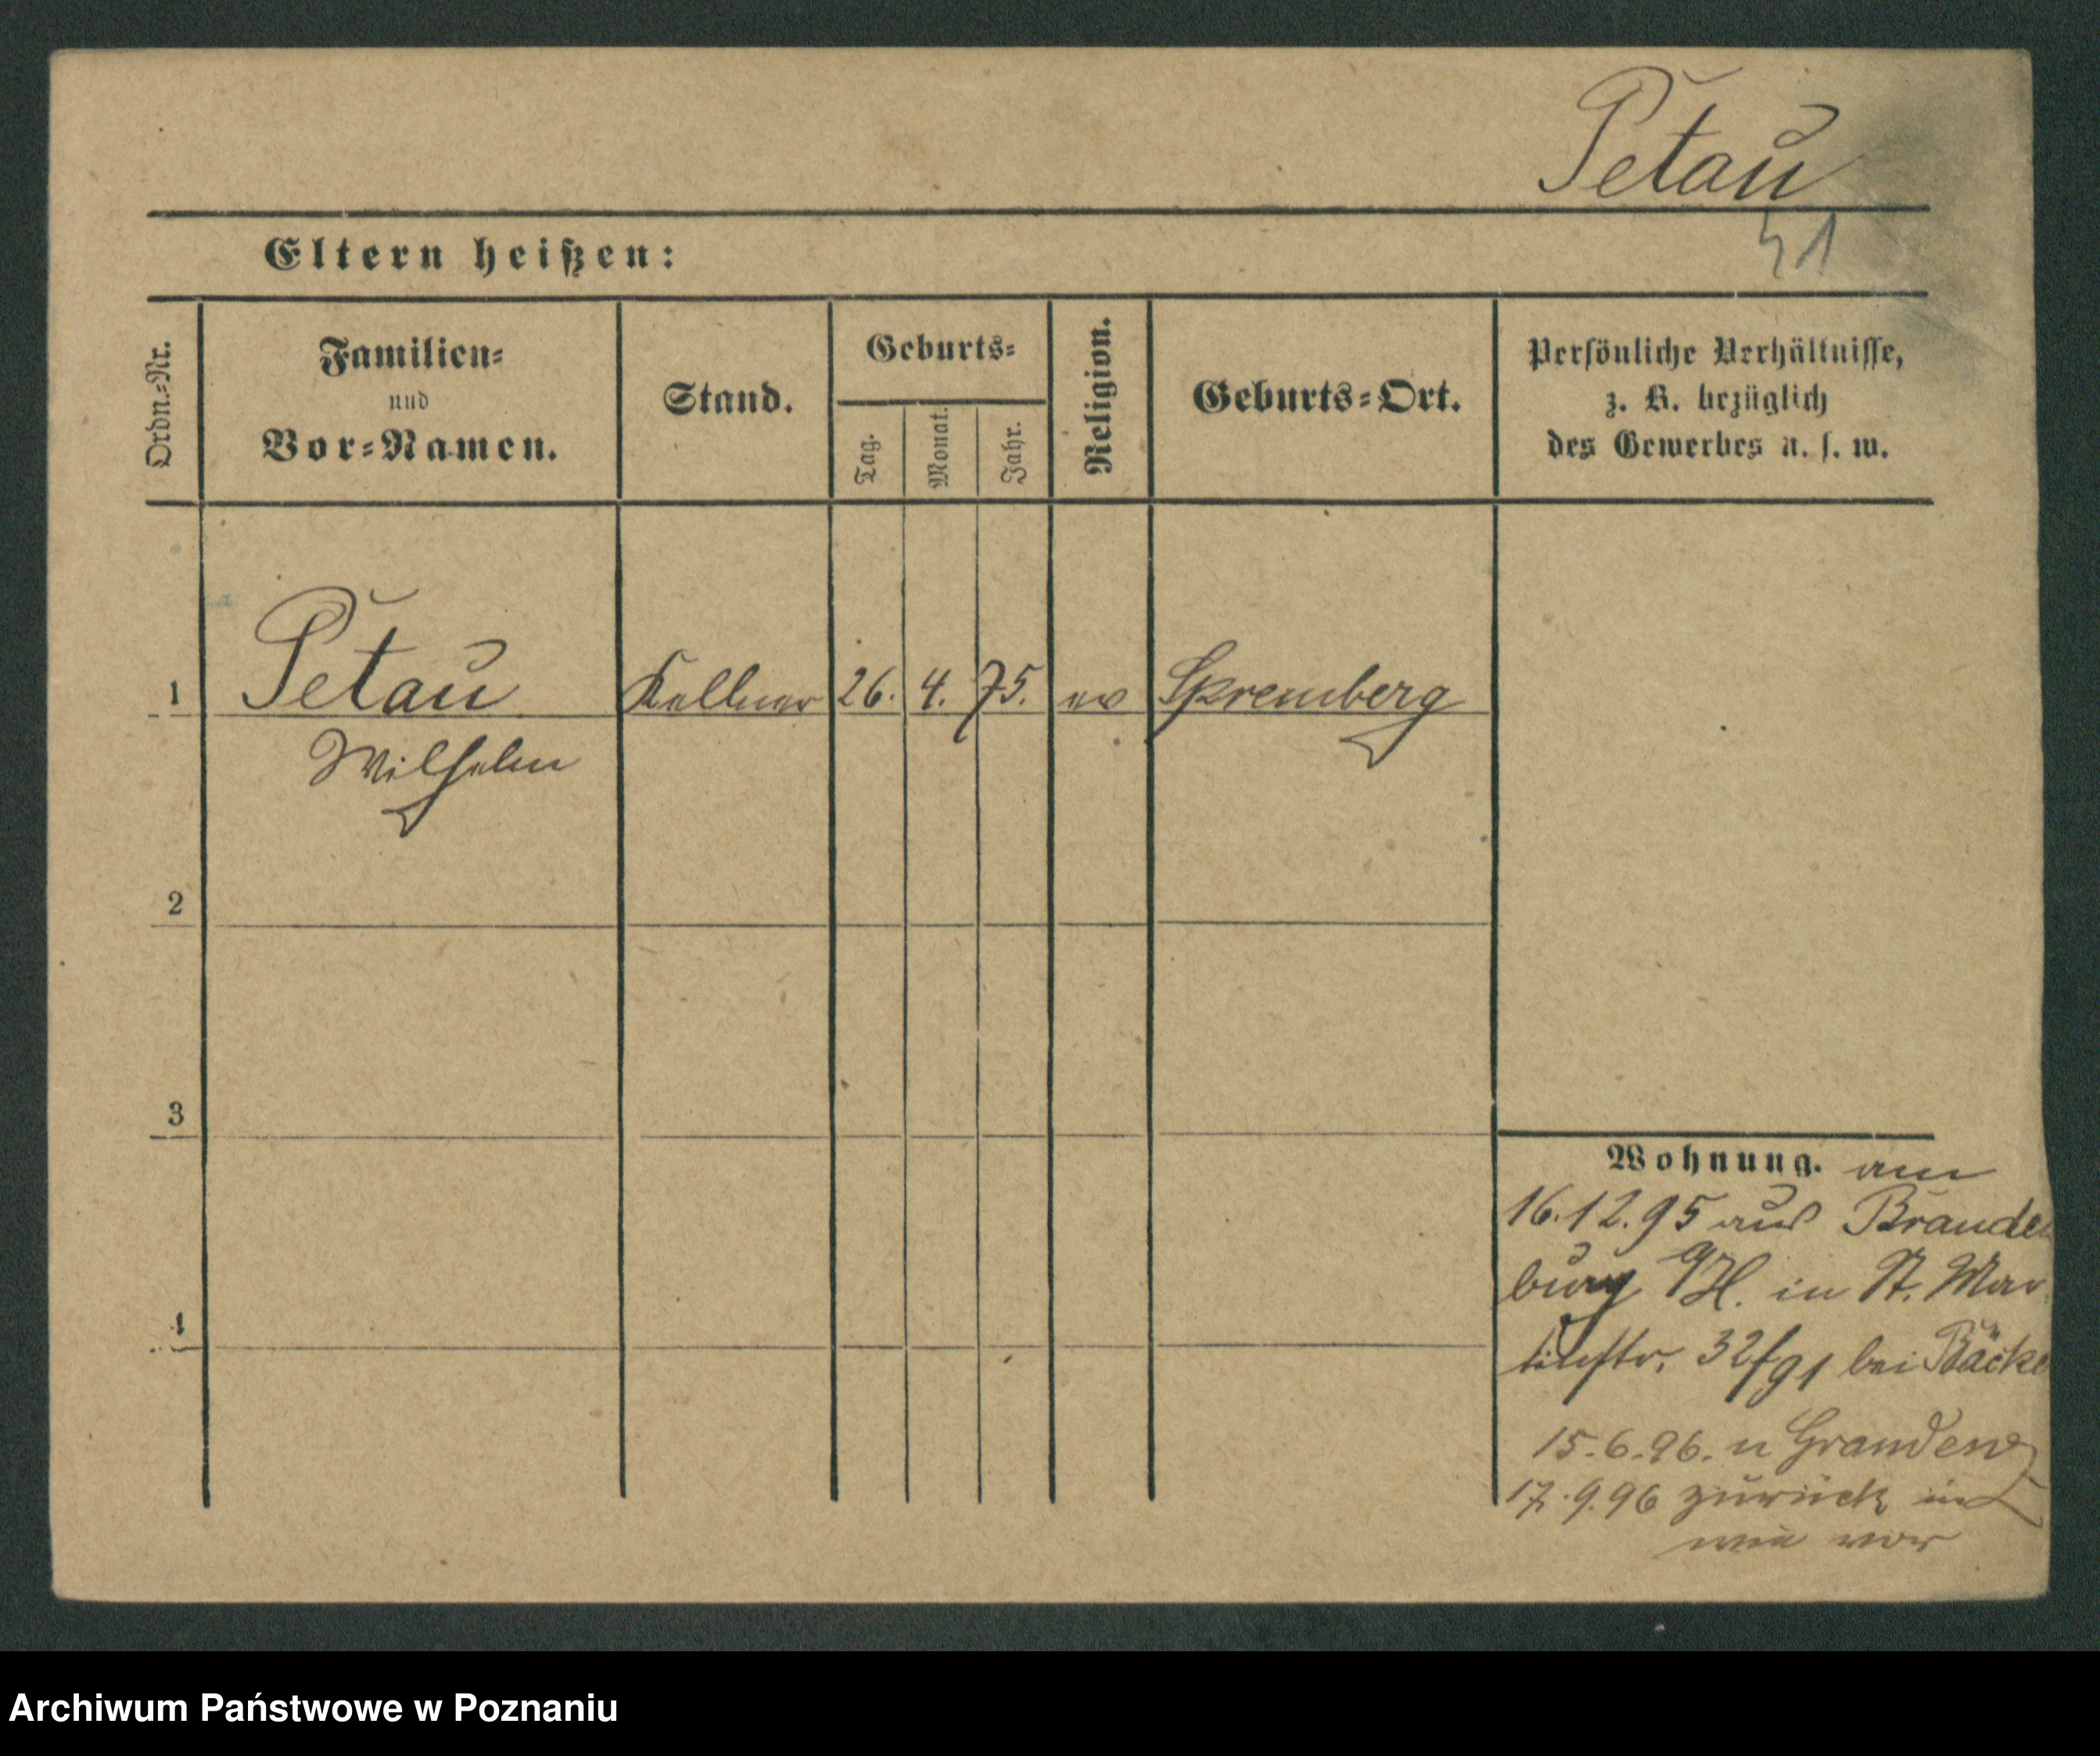 Petau
41
Eltern heißen:
Ordn.-Nr.
Familien-
und
Vor-Namen.
Stand.
Geburts-
Tag.
Monat.
Jahr.
Religion.
Geburts-Ort.
Persönliche Verhältnisse,
z. B. bezüglich
des Gewerbes u. s. w.
1 Petau Kellner 26. 4. 75. ev Spremberg
Wilhelm
2
3
4
Wohnung. am
16.12.95 aus Branden
burg /H. in St. Mar
tinstr. 32 bei Bäcke
15.6.96. n Graudenz
17.9.96 zurück in
wie vor
Archiwum Państwowe w Poznaniu